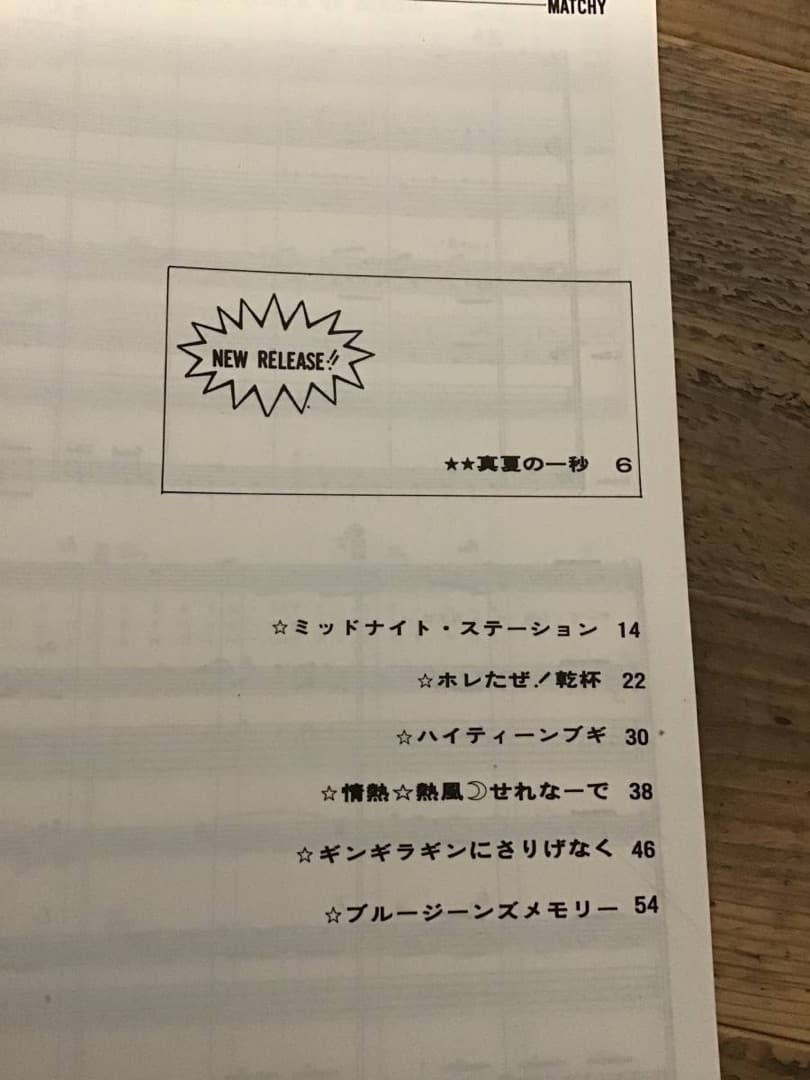 MATCHY
NEW RELEASE!!
★★真夏の一秒 6
☆ミッドナイト・ステーション 14
☆ホレたぜ!乾杯 22
☆ハイティーンブギ 30
☆情熱☆熱風☽せれなーで 38
☆ギンギラギンにさりげなく 46
☆ブルージーンズメモリー 54